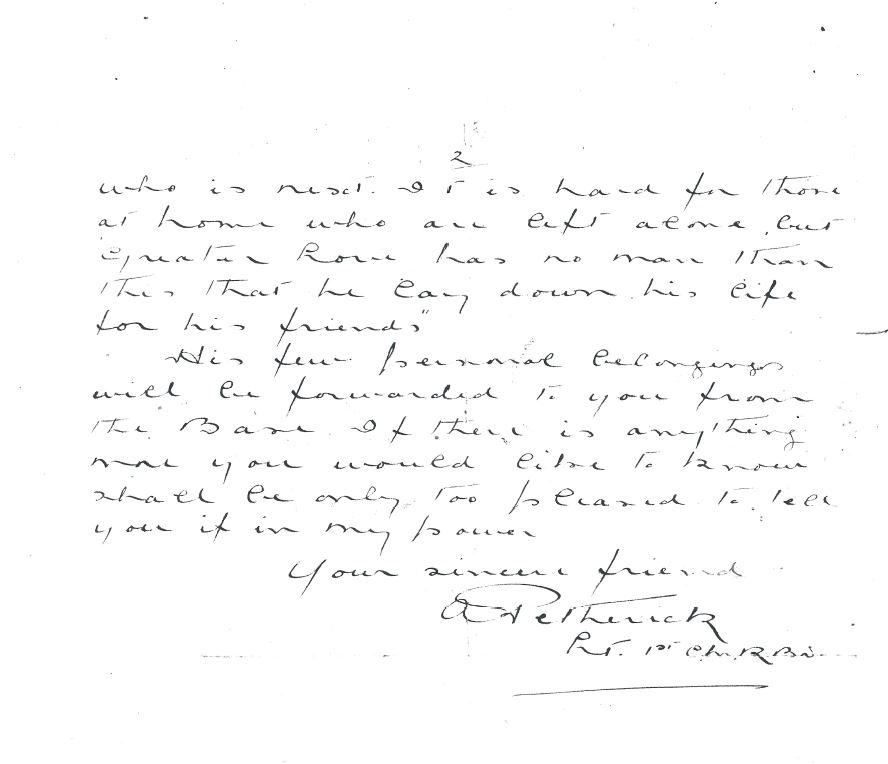 2
who is next. It is hard for those
at home who are left alone, but
"Greater love has no man than
this that he lay down his life
for his friends"
His few personal belongings
will be forwarded to you from
the Base. If there is anything
more you would like to know
shall be only too pleased to tell
you if in my power
Your sincere friend
A Petherick
Lt. 1st C.M.R. Bn